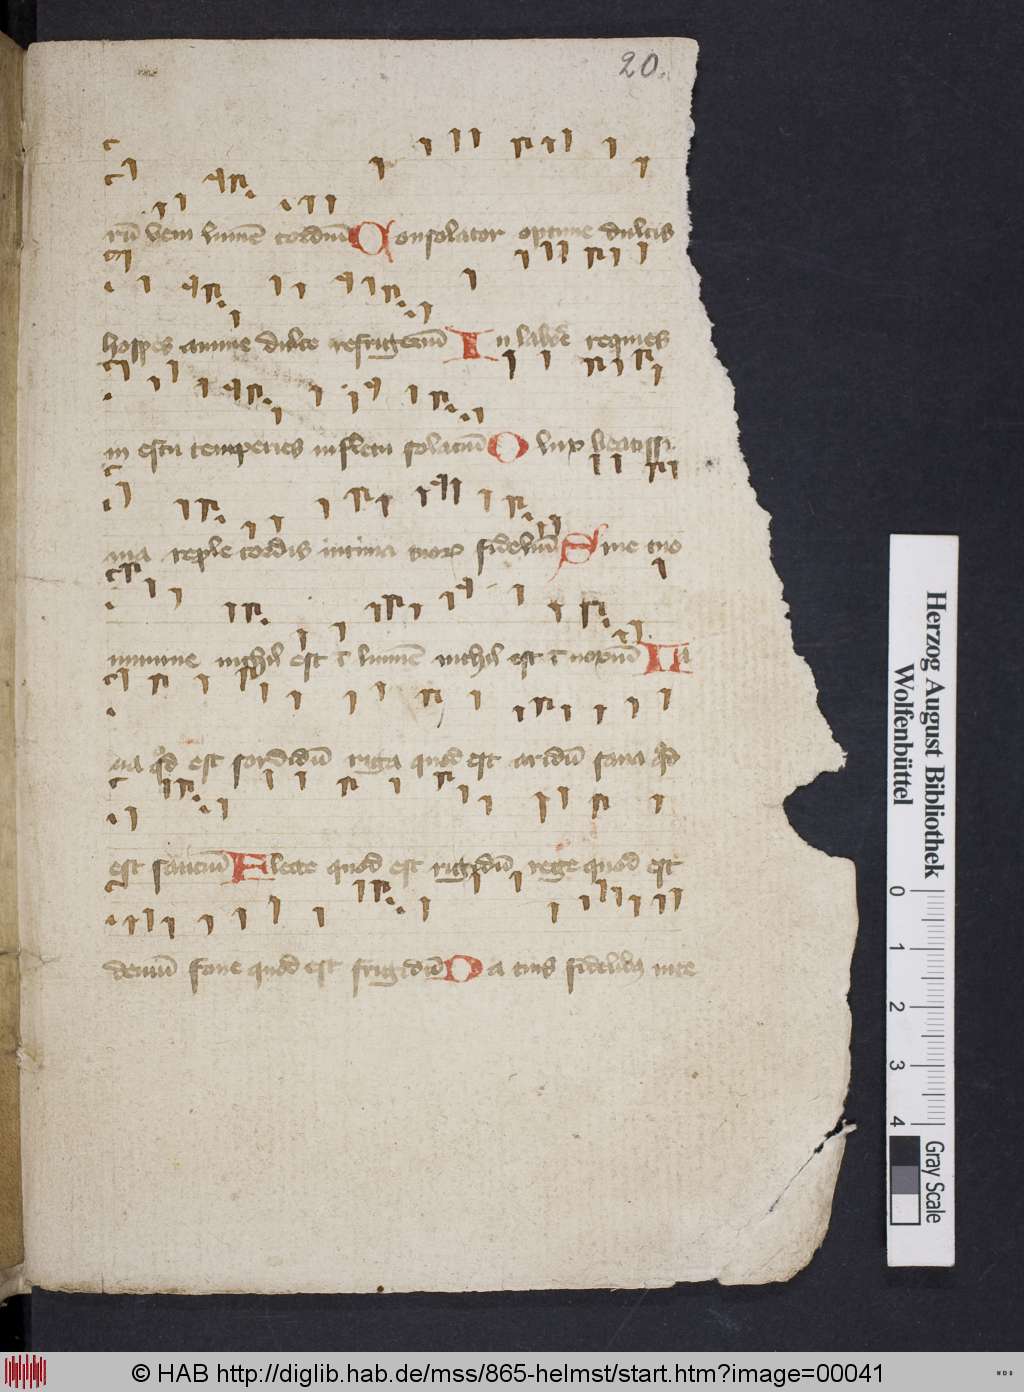 20.
rū veni lumē cordiū Consolator optime dulcis
hospes anime dulce refrigeriū In labore requies
in estu temperies in fletu solaciū O lux beatissi
ma reple cordis intima tuorꝝ fideliū Sine tuo
numine nichil est ī lumē nichil est ī noxiū La
ua qd est sordidū riga quod est aridū sana qd
est sauciū Flecte quod est rigidū rege quod est
deviū fove quod est frigidū Da tuis fidelibꝫ in te
Herzog August Bibliothek
Wolfenbüttel
0 1 2 3 4
Gray Scale
© HAB http://diglib.hab.de/mss/865-helmst/start.htm?image=00041